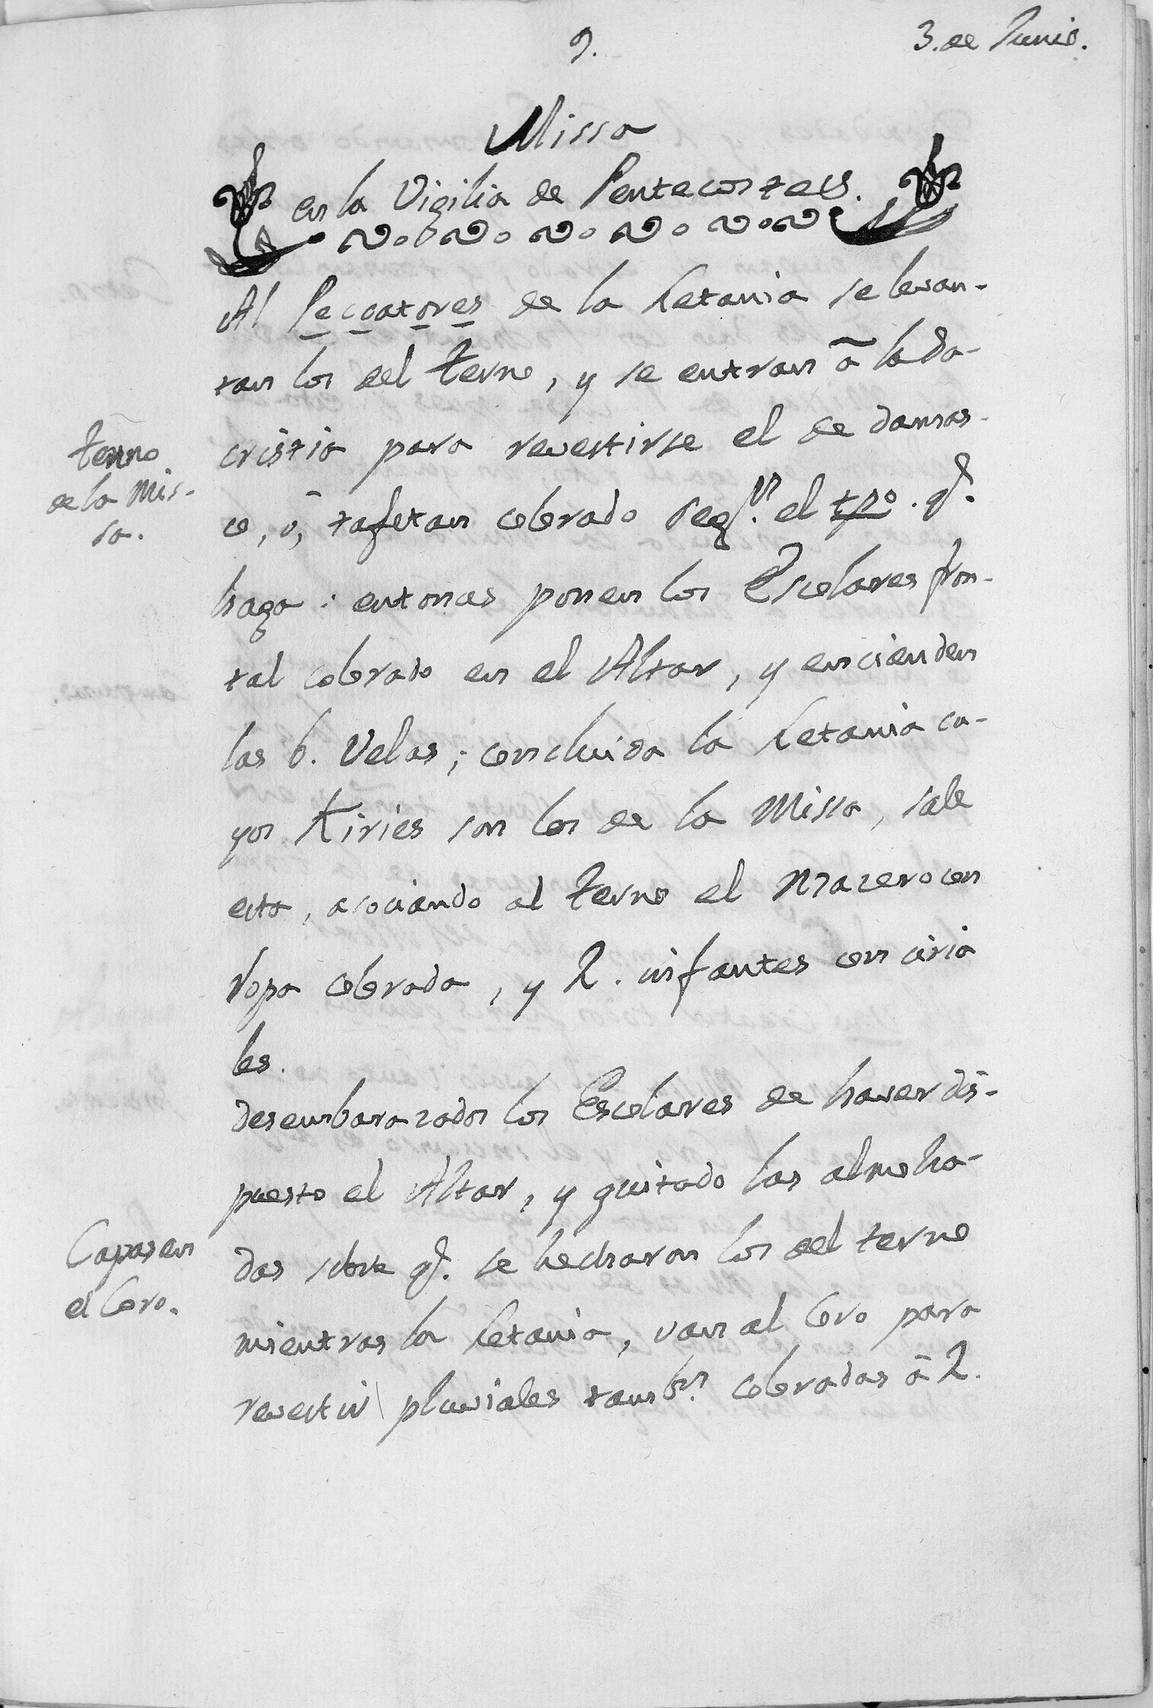 9.
3. de Junio.
Missa
en la Vigilia de Pentecostes.
Al Peccatores de la Letania se levan-
tan los del terno, y se entran â la Sa-
cristia para revestirse el de damas-
co, ó, tafetan colorado seg.n el tpo. q.
haga: entonces ponen los Escolares fron-
tal colorado en el Altar, y encienden
las 6. Velas; concluida la Letania cu-
yos Kiries son los de la Missa, sale
esta, asociando al terno el Mazero con
Ropa colorada, y 2. infantes con ciria
les.
desembarazados los Escolares de haver dis-
puesto el Altar, y quitado las almoha-
das sobre q. se hecharon los del terno
mientras la Letania, van al Coro para
revestir pluviales tamb.n coloradas â 2.
terno
de la Mis-
sa.
Capas en
el Coro.